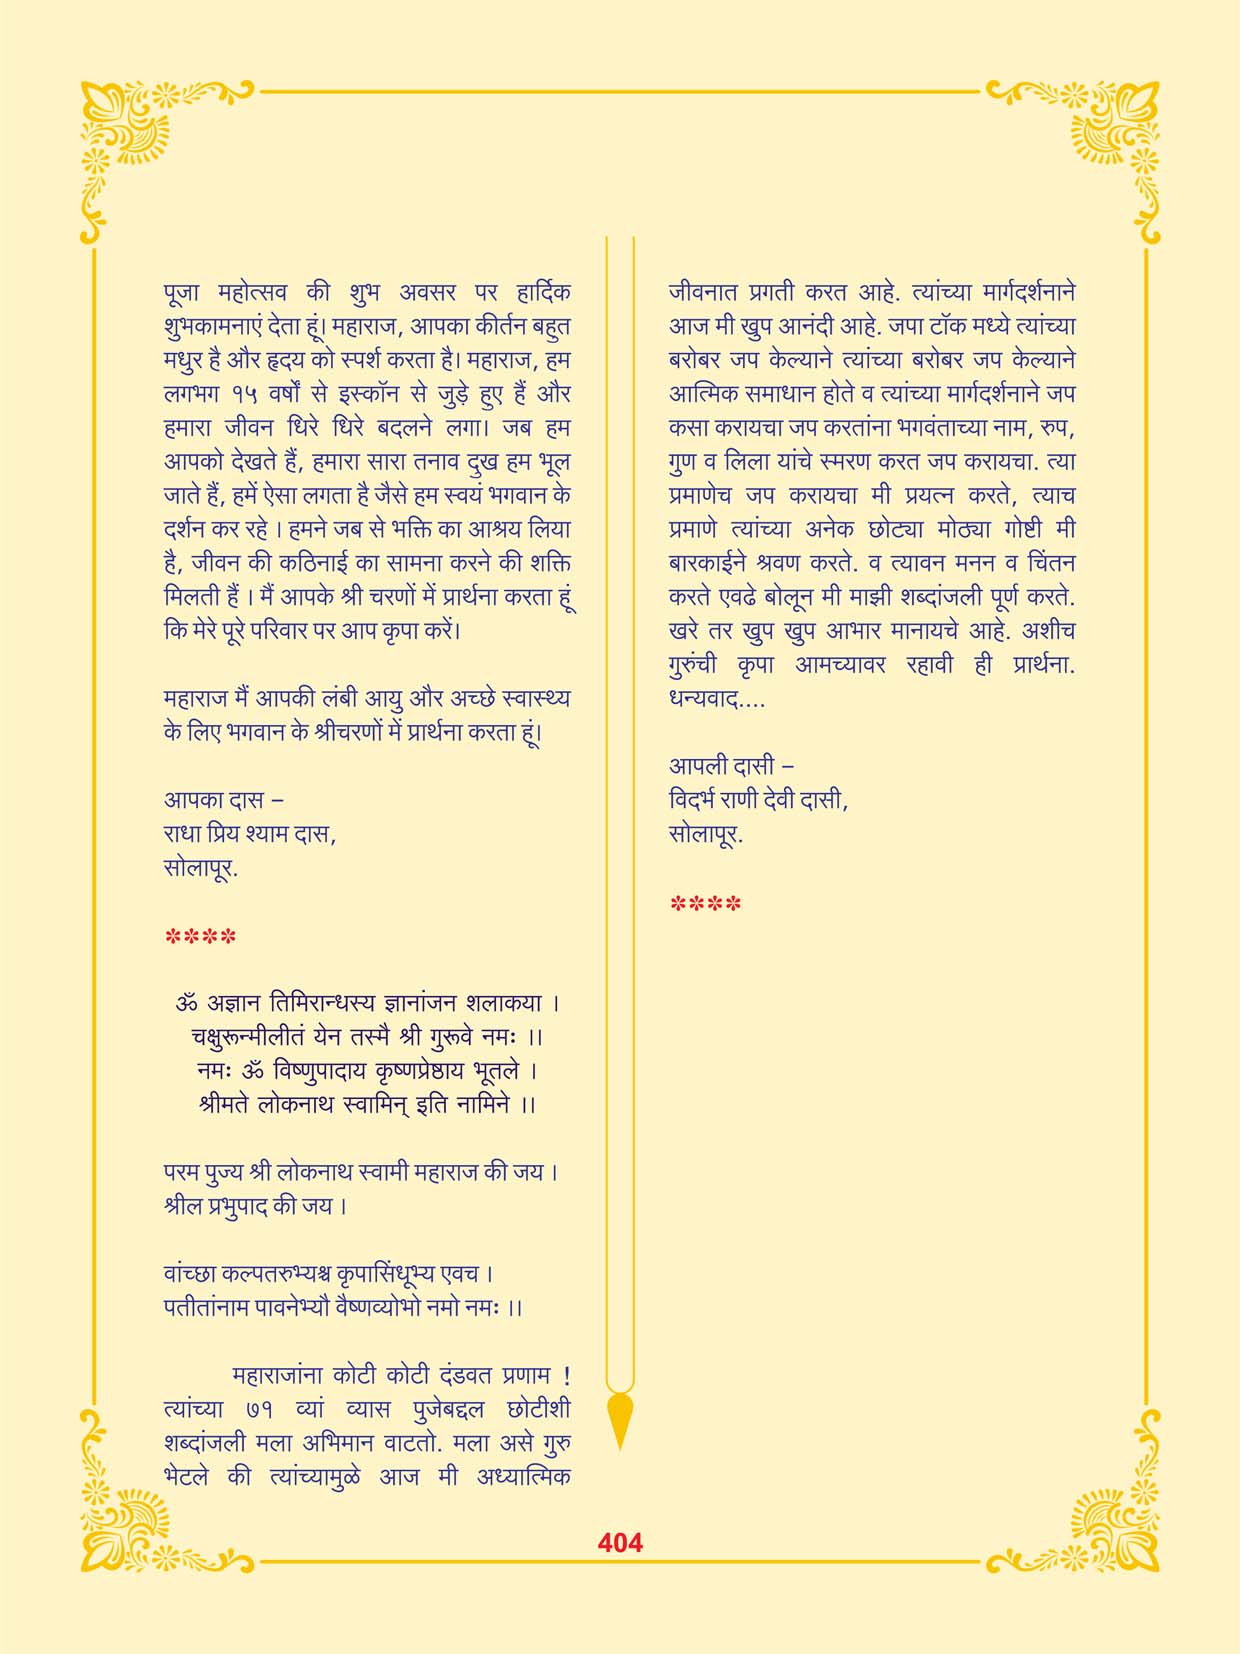 पूजा महोत्सव की शुभ अवसर पर हार्दिक
शुभकामनाएं देता हूं। महाराज, आपका कीर्तन बहुत
मधुर है और हृदय को स्पर्श करता है। महाराज, हम
लगभग १५ वर्षों से इस्कॉन से जुड़े हुए हैं और
हमारा जीवन धिरे धिरे बदलने लगा। जब हम
आपको देखते हैं, हमारा सारा तनाव दुख हम भूल
जाते हैं, हमें ऐसा लगता है जैसे हम स्वयं भगवान के
दर्शन कर रहे । हमने जब से भक्ति का आश्रय लिया
है, जीवन की कठिनाई का सामना करने की शक्ति
मिलती हैं । मैं आपके श्री चरणों में प्रार्थना करता हूं
कि मेरे पूरे परिवार पर आप कृपा करें।
महाराज मैं आपकी लंबी आयु और अच्छे स्वास्थ्य
के लिए भगवान के श्रीचरणों में प्रार्थना करता हूं।
आपका दास –
राधा प्रिय श्याम दास,
सोलापूर.
****
ॐ अज्ञान तिमिरान्धस्य ज्ञानांजन शलाकया ।
चक्षुरून्मीलीतं येन तस्मै श्री गुरूवे नमः ।।
नमः ॐ विष्णुपादाय कृष्णप्रेष्ठाय भूतले ।
श्रीमते लोकनाथ स्वामिन् इति नामिने ।।
परम पुज्य श्री लोकनाथ स्वामी महाराज की जय ।
श्रील प्रभुपाद की जय ।
वांच्छा कल्पतरुभ्यश्च कृपासिंधूभ्य एवच ।
पतीतांनाम पावनेभ्यौ वैष्णव्योभो नमो नमः ।।
महाराजांना कोटी कोटी दंडवत प्रणाम !
त्यांच्या ७१ व्यां व्यास पुजेबद्दल छोटीशी
शब्दांजली मला अभिमान वाटतो. मला असे गुरु
भेटले की त्यांच्यामुळे आज मी अध्यात्मिक
जीवनात प्रगती करत आहे. त्यांच्या मार्गदर्शनाने
आज मी खुप आनंदी आहे. जपा टॉक मध्ये त्यांच्या
बरोबर जप केल्याने त्यांच्या बरोबर जप केल्याने
आत्मिक समाधान होते व त्यांच्या मार्गदर्शनाने जप
कसा करायचा जप करतांना भगवंताच्या नाम, रुप,
गुण व लिला यांचे स्मरण करत जप करायचा. त्या
प्रमाणेच जप करायचा मी प्रयत्न करते, त्याच
प्रमाणे त्यांच्या अनेक छोट्या मोठ्या गोष्टी मी
बारकाईने श्रवण करते. व त्यावन मनन व चिंतन
करते एवढे बोलून मी माझी शब्दांजली पूर्ण करते.
खरे तर खुप खुप आभार मानायचे आहे. अशीच
गुरुंची कृपा आमच्यावर रहावी ही प्रार्थना.
धन्यवाद....
आपली दासी –
विदर्भ राणी देवी दासी,
सोलापूर.
****
404